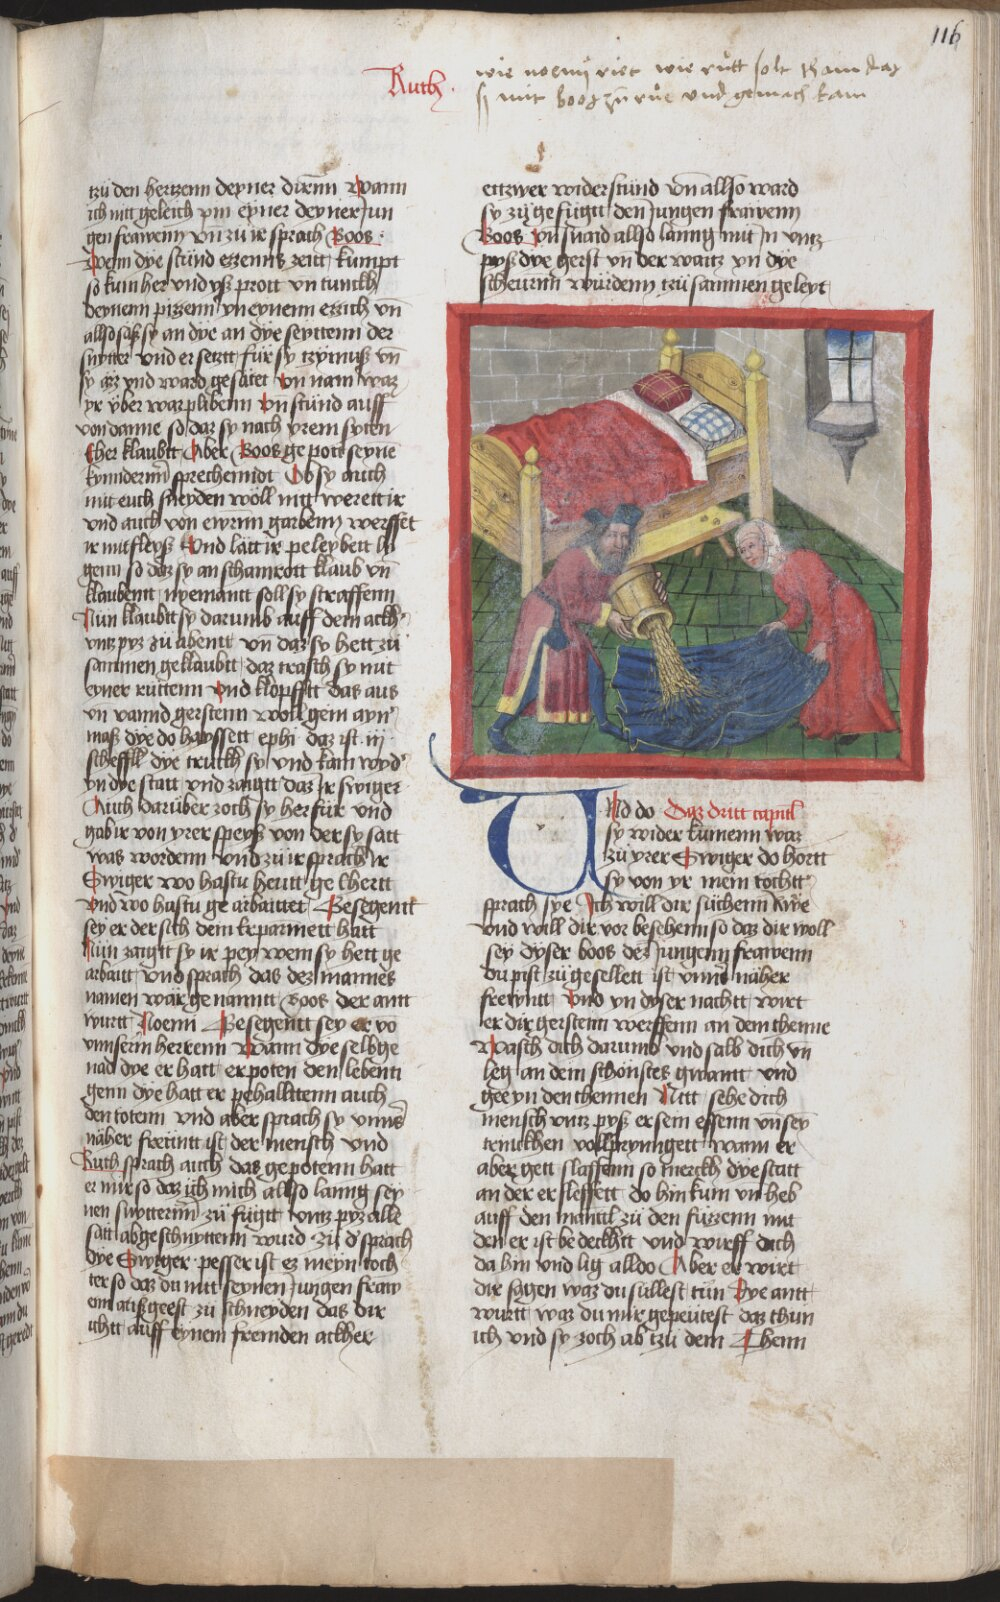 116
Ruth.
wie noemy riet wie rutt solt
sy mit boos zu rue und gemach kam
tzü den hertzenn deyner dirnn Wann
ich nitt geleich pin eyner deyner Jun
gen frawenn vn̄ zu ir sprach Boos
Wenn dye stünd ezzenns zeitt kumpt
so kum her vnd yß prott vn̄ tunckh
deynenn pizzenn yn eynenn ezzich vn̄
allso saß sy an dye seyttenn der
snytter vnd er setztt für sy tzymuß vn̄
sy azz vnd ward gesätet vn̄ nam waz
yr yber war plibenn vn̄ stünd auff
von danne so daz sy nach yrem syten
Eher klaubtt Aber Boos ge pott seynē
kynnderñ sprechenndt Ob sy auch
mit euch sneyden wöll nitt werett ir
vnd auch von ewrnn garbenn werffet
ir mit fleyß Vnd lätt ir peleybett
genn so daz sy an schamrott klaub vn̄
klaubennt nyemantt soll sy straffenn
Nün klaubtt sy darumb auff dem ackh
vntz pyz zü abentt vn̄ daz sy hett zü
sammen geklaubtt daz trasch sy mit
eyner rüttenn vnd klopfftt das aus
vn̄ vannd gerstenn woll gem ayn
maß dye do hayssett ephi daz ist iij
scheffll dye truckh sy vnd kam wyd
yn dye statt vnd zaigtt daz Ir swiger
Auch darüber zoch sy herfür vnd
gab ir von yrer speyß von der sy satt
was wordenn vnd zü ir sprach ir
Swiger wo hastu heutt ge Ehertt
vnd wo hastu ge arbaittet Gesegentt
sey er der sich dein erparmett hatt
Nün zaigtt sy ir pey wem sy hett ge
arbaitt vnd sprach das dez mannes
namen wär ge nanntt Boos der antt
wurtt Noemi Gesegentt sey er vō
vnnserm herrenn Wann dye selbige
nad dye er hatt er poten den lebenti
genn dye hatt er pehallttenn auch
den totenn vnd aber sprach sy vnns
näher freüntt ist der mensch vnd
Ruth sprach auch daz ge potenn hatt
er mir so daz ich mich allso lanng sey
nen snytternn zü fügtt vntz pyz alle
satt abgeschnyttenn wurd zü d sprach
dye Swiger pesser ist ez meyn toch
ter so daz du mitt seynen Jungen fraw
enn außgeest zü schneyden das dir
ichtt auff eynem fremden ackher
ettzwer widerstünd vn̄ allso ward
sy zü gefügtt den Jungen frawenn
Boos vn̄ snaid allso lanng mit In vntz
pyß dye gerst vn̄ der waitz yn dye
scheürnn würdenn tzü sammen geleyt
Vnd do Daz dritt capitl
sy wider kumenn waz
zü yrer Swiger do hortt
sy von yr mein tochtt
sprach sye Ich will dir süchenn rwe
vnd will dir vor besehenn so daz dir woll
sey dyser boos dez Jungenn frawenn
du pist zü gesellett ist vnns näher
frewntt Vnd yn dyser nachtt wirt
er dir gerstenn werffenn an dem thenne
Wasch dich darumb vnd salb dich vn̄
leg an dein schönstes gwantt vnd
gee yn den thennen Nitt sehe dich
mensch vntz pyß er sein essenn vn̄ seyn
trinckhen vollprynngett wann er
aber gett slaffenn so merckh dye statt
an der er sleffett do hin kum vn̄ heb
auff den mantll zü den füzzenn mit
den er ist bedeckhtt vnd wirff dich
da hin vnd lig alldo Aber er wirt
dir sagen waz du süllest tün Dye antt
wurtt waz du mir gepeütest daz thun
ich vnd sy zoch ab tzü dem Thenn